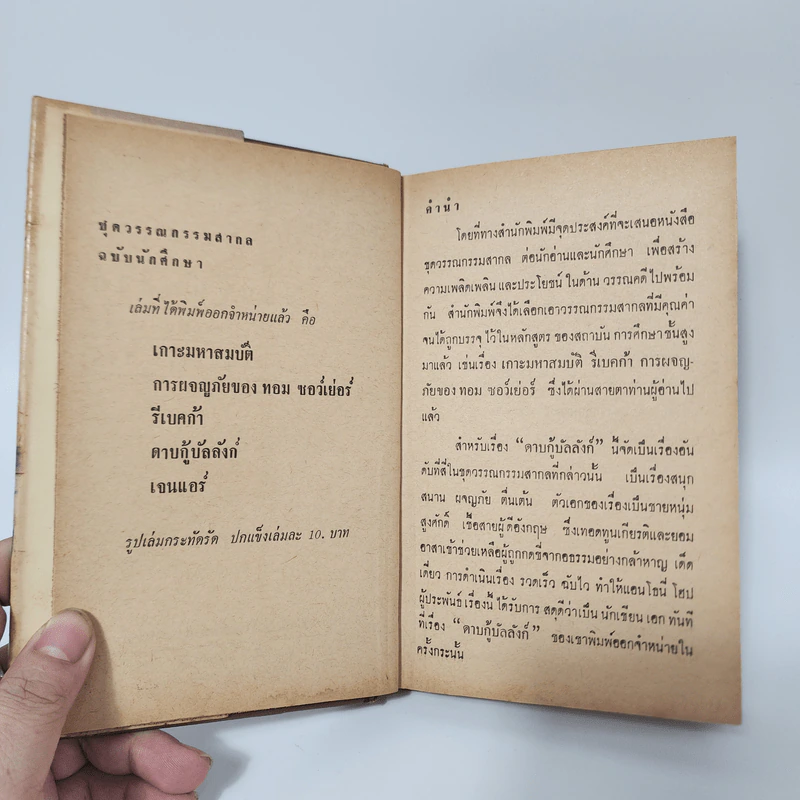 ชุดวรรณกรรมสากล
ฉบับนักศึกษา
เล่มที่ ได้พิมพ์ออกจำหน่ายแล้ว คือ
เกาะมหาสมบัติ
การผจญภัยของ ทอม ซอว์เย่อร์
รีเบคก้า
ดาบกู้บัลลังก์
เจนแอร์
รูปเล่มกระทัดรัด ปกแข็งเล่มละ 10. บาท
คำนำ
โดยที่ทางสำนักพิมพ์มีจุดประสงค์ที่จะเสนอหนังสือ
ชุดวรรณกรรมสากล ต่อนักอ่านและนักศึกษา เพื่อสร้าง
ความเพลิดเพลิน และประโยชน์ ในด้าน วรรณคดี ไปพร้อม
กัน สำนักพิมพ์จึงได้เลือกเอาวรรณกรรมสากลที่มีคุณค่า
จนได้ถูกบรรจุ ไว้ในหลักสูตร ของสถาบัน การศึกษา ชั้นสูง
มาแล้ว เช่นเรื่อง เกาะมหาสมบัติ รีเบคก้า การผจญ-
ภัยของ ทอม ซอว์เย่อร์ ซึ่งได้ผ่านสายตาท่านผู้อ่านไป
แล้ว
สำหรับเรื่อง “ดาบกู้บัลลังก์” นี้จัดเป็นเรื่องอัน
ดับที่สี่ในชุดวรรณกรรมสากลที่กล่าวนั้น เป็นเรื่องสนุก
สนาน ผจญภัย ตื่นเต้น ตัวเอกของเรื่องเป็นชายหนุ่ม
สูงศักดิ์ เชื้อสายผู้ดีอังกฤษ ซึ่งเทอดทูนเกียรติและยอม
อาสาเข้าช่วยเหลือผู้ถูกกดขี่จากอธรรมอย่างกล้าหาญ เด็ด
เดี่ยว การดำเนินเรื่อง รวดเร็ว ฉับไว ทำให้แอนโธนี่ โฮป
ผู้ประพันธ์ เรื่องนี้ ได้รับการ สดุดีว่าเป็น นักเขียน เอก ทันที
ที่เรื่อง “ดาบกู้บัลลังก์” ของเขาพิมพ์ออกจำหน่ายใน
ครั้งกระนั้น